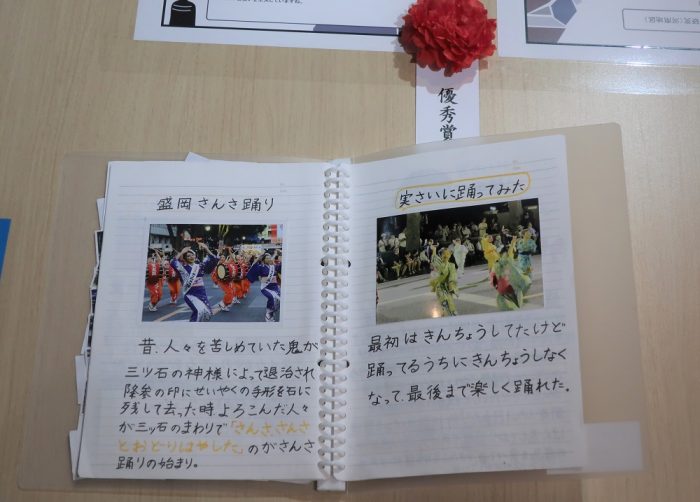 優秀賞
盛岡さんさ踊り
昔、人々を苦しめていた鬼が
三ツ石の神様によって退治され
降参の印にせいやくの手形を石に
残して去った時、よろこんだ人々
が三ッ石のまわりで「さんさ、さんさ
とおどりはやした」のがさんさ
踊りの始まり。
実さいに踊ってみた
最初はきんちょうしてたけど
踊ってるうちにきんちょうしなく
なって、最後まで楽しく踊れた。